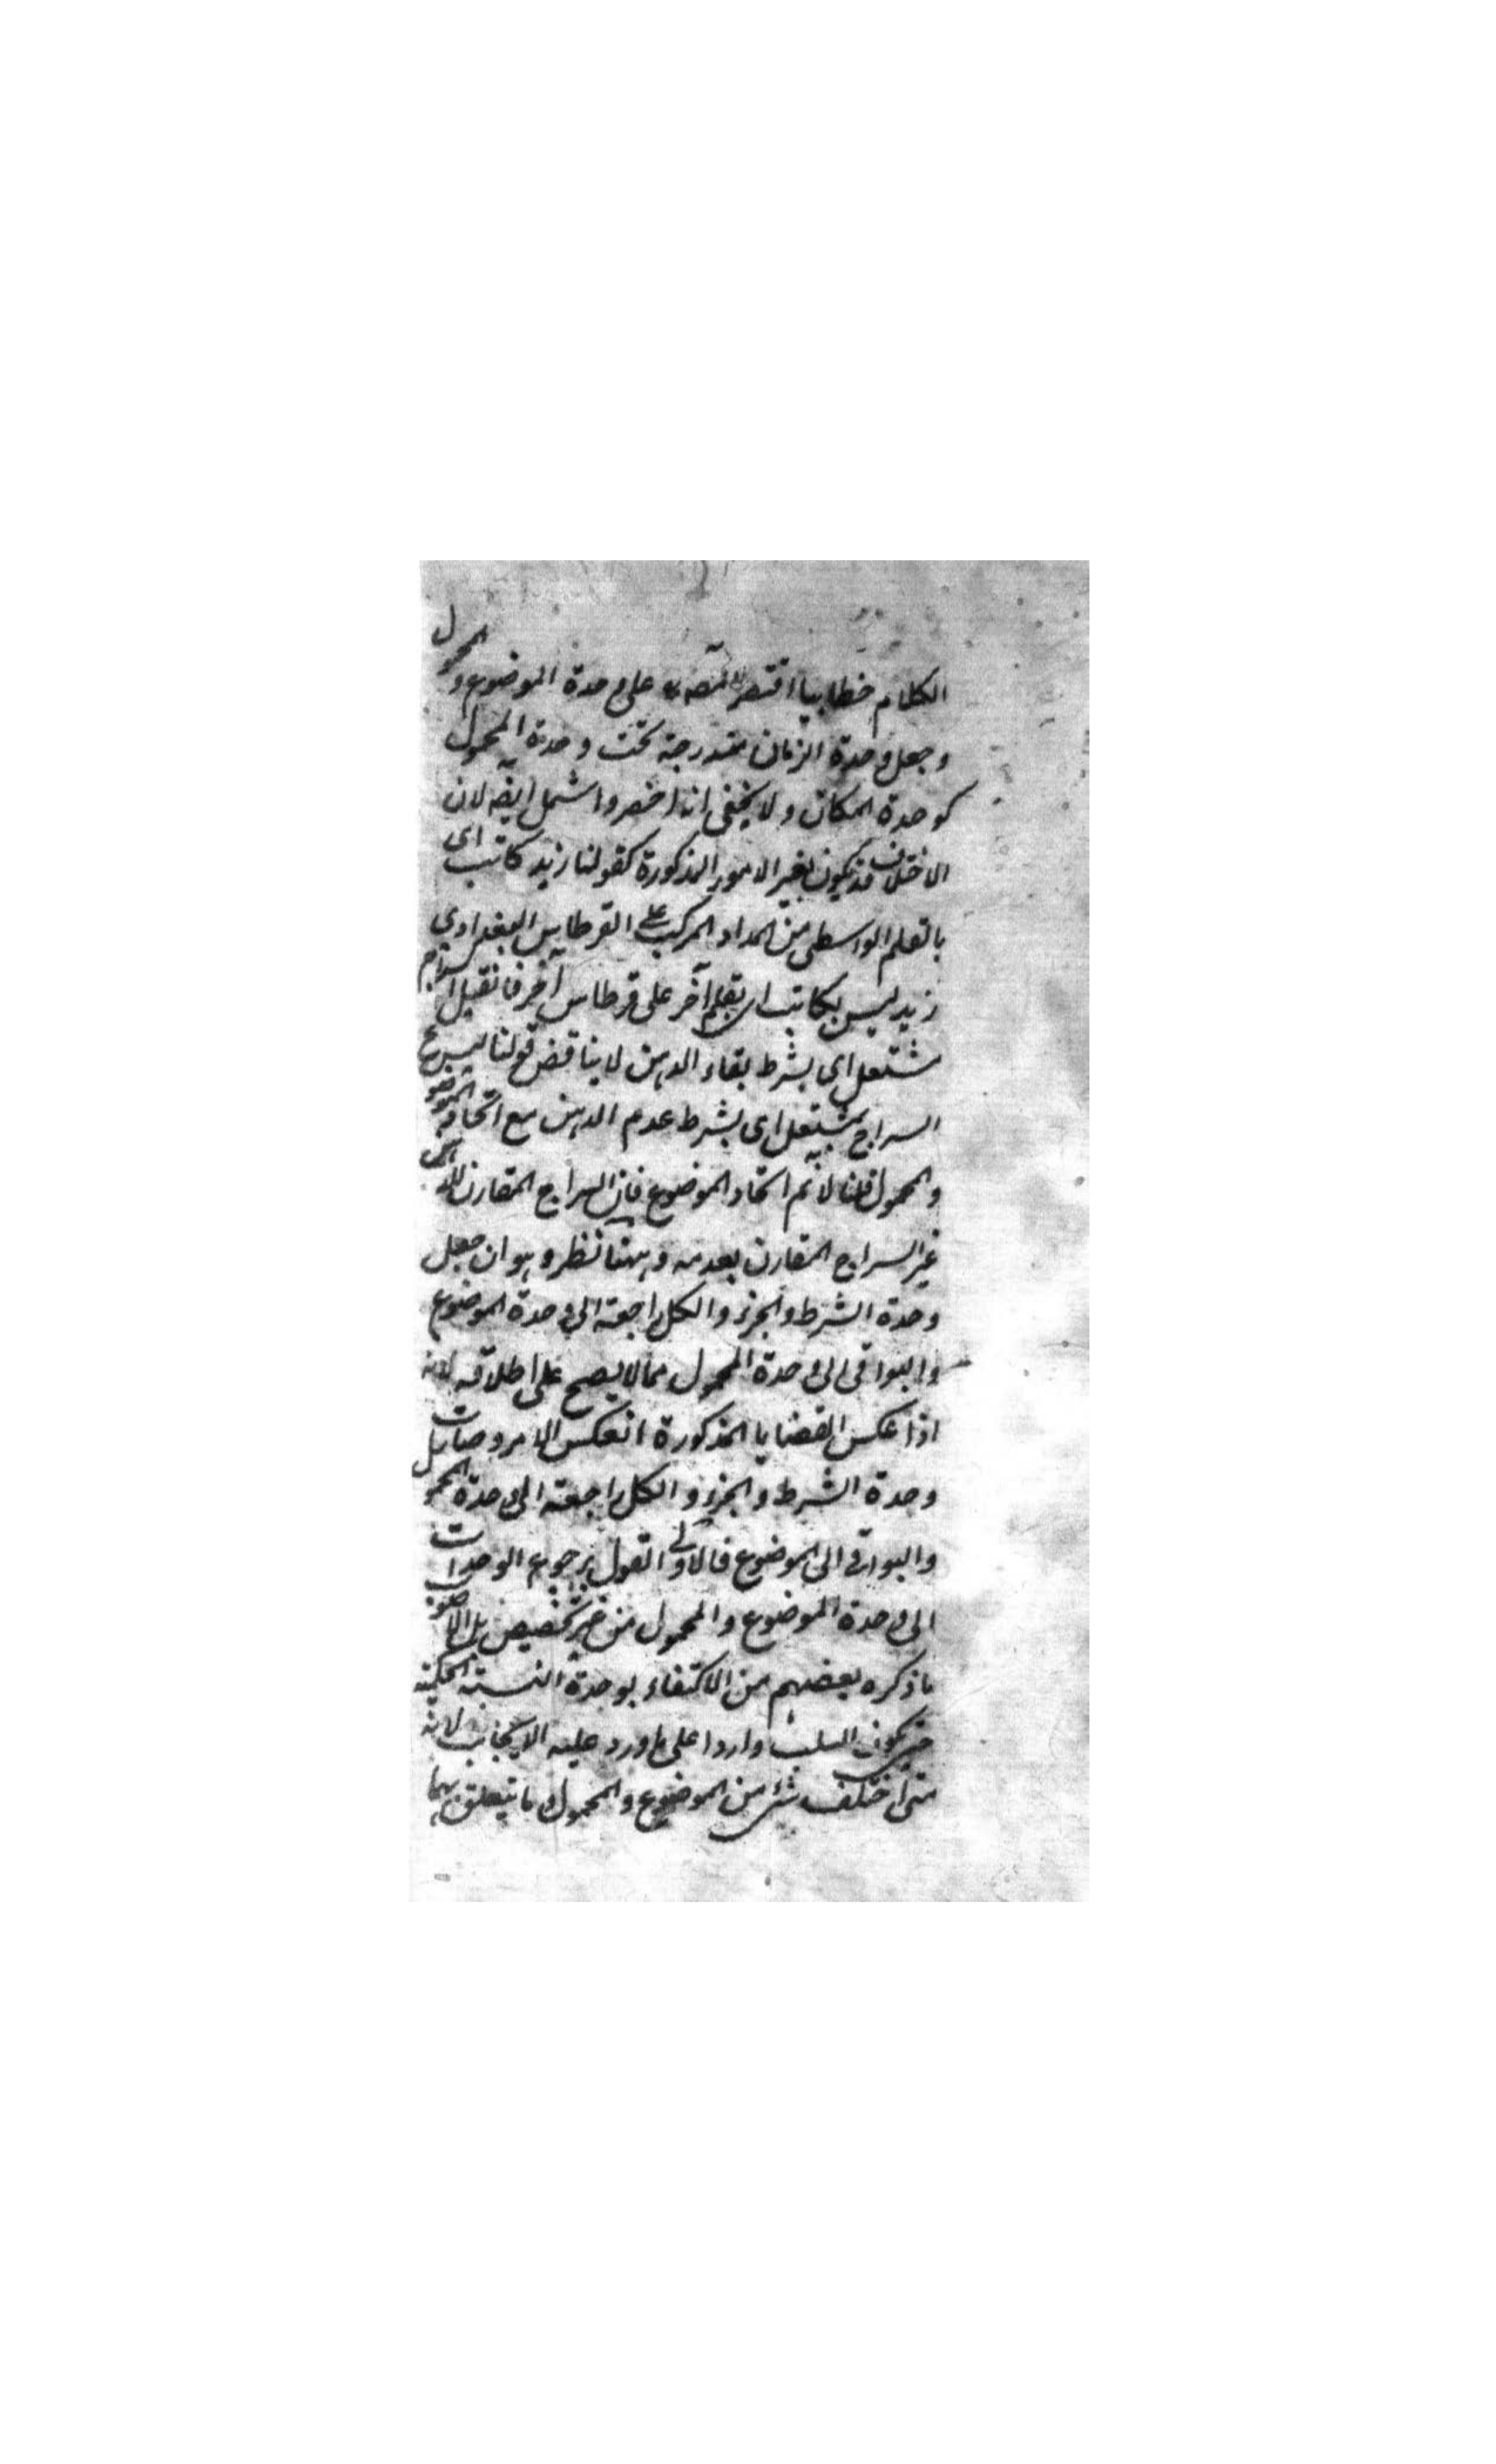 الكلام خطابيا اقتصر المصه على وحدة الموضوع والمحمول
وجعل وحدة الزمان مندرجة تحت وحدة المحمول
كوحدة المكان ولا يخفى انه اخصر واشمل ايضه لان
الاختلاف قد يكون بغير الامور المذكورة كقولنا زيد كاتب اى
بالقلم الواسطى من المداد المركب على القرطاس البغدادى
زيد ليس بكاتب اى بقلم آخر على قرطاس آخر فان قيل السراج
مشتعل اى بشرط بقاء الدهن لا يناقض قولنا ليس
السراج بمشتعل اى بشرط عدم الدهن مع اتحاد الموضوع
والمحمول قلنا لا نم اتحاد الموضوع فان السراج المقارن للدهن
غير السراج المقارن بعدمه وههنا نظر وهو ان جعل
وحدة الشرط والجزء والكل راجعة الى وحدة الموضوع
والبواقى الى وحدة المحمول مما لا يصح على اطلاقه لانه
اذا عكس القضايا المذكورة انعكس الامر وصارت
وحدة الشرط والجزء والكل راجعة الى وحدة المحمول
والبواقى الى الموضوع فالاولى القول برجوع الوحدات
الى وحدة الموضوع والمحمول من غير تخصيص بل الاصوب
ما ذكره بعضهم من الاكتفاء بوحدة النسبة الحكمية
حتى يكون السلب واردا على ما ورد عليه الايجاب لانه
متى اختلف شئ من الموضوع والمحمول او ما يتعلق بهما